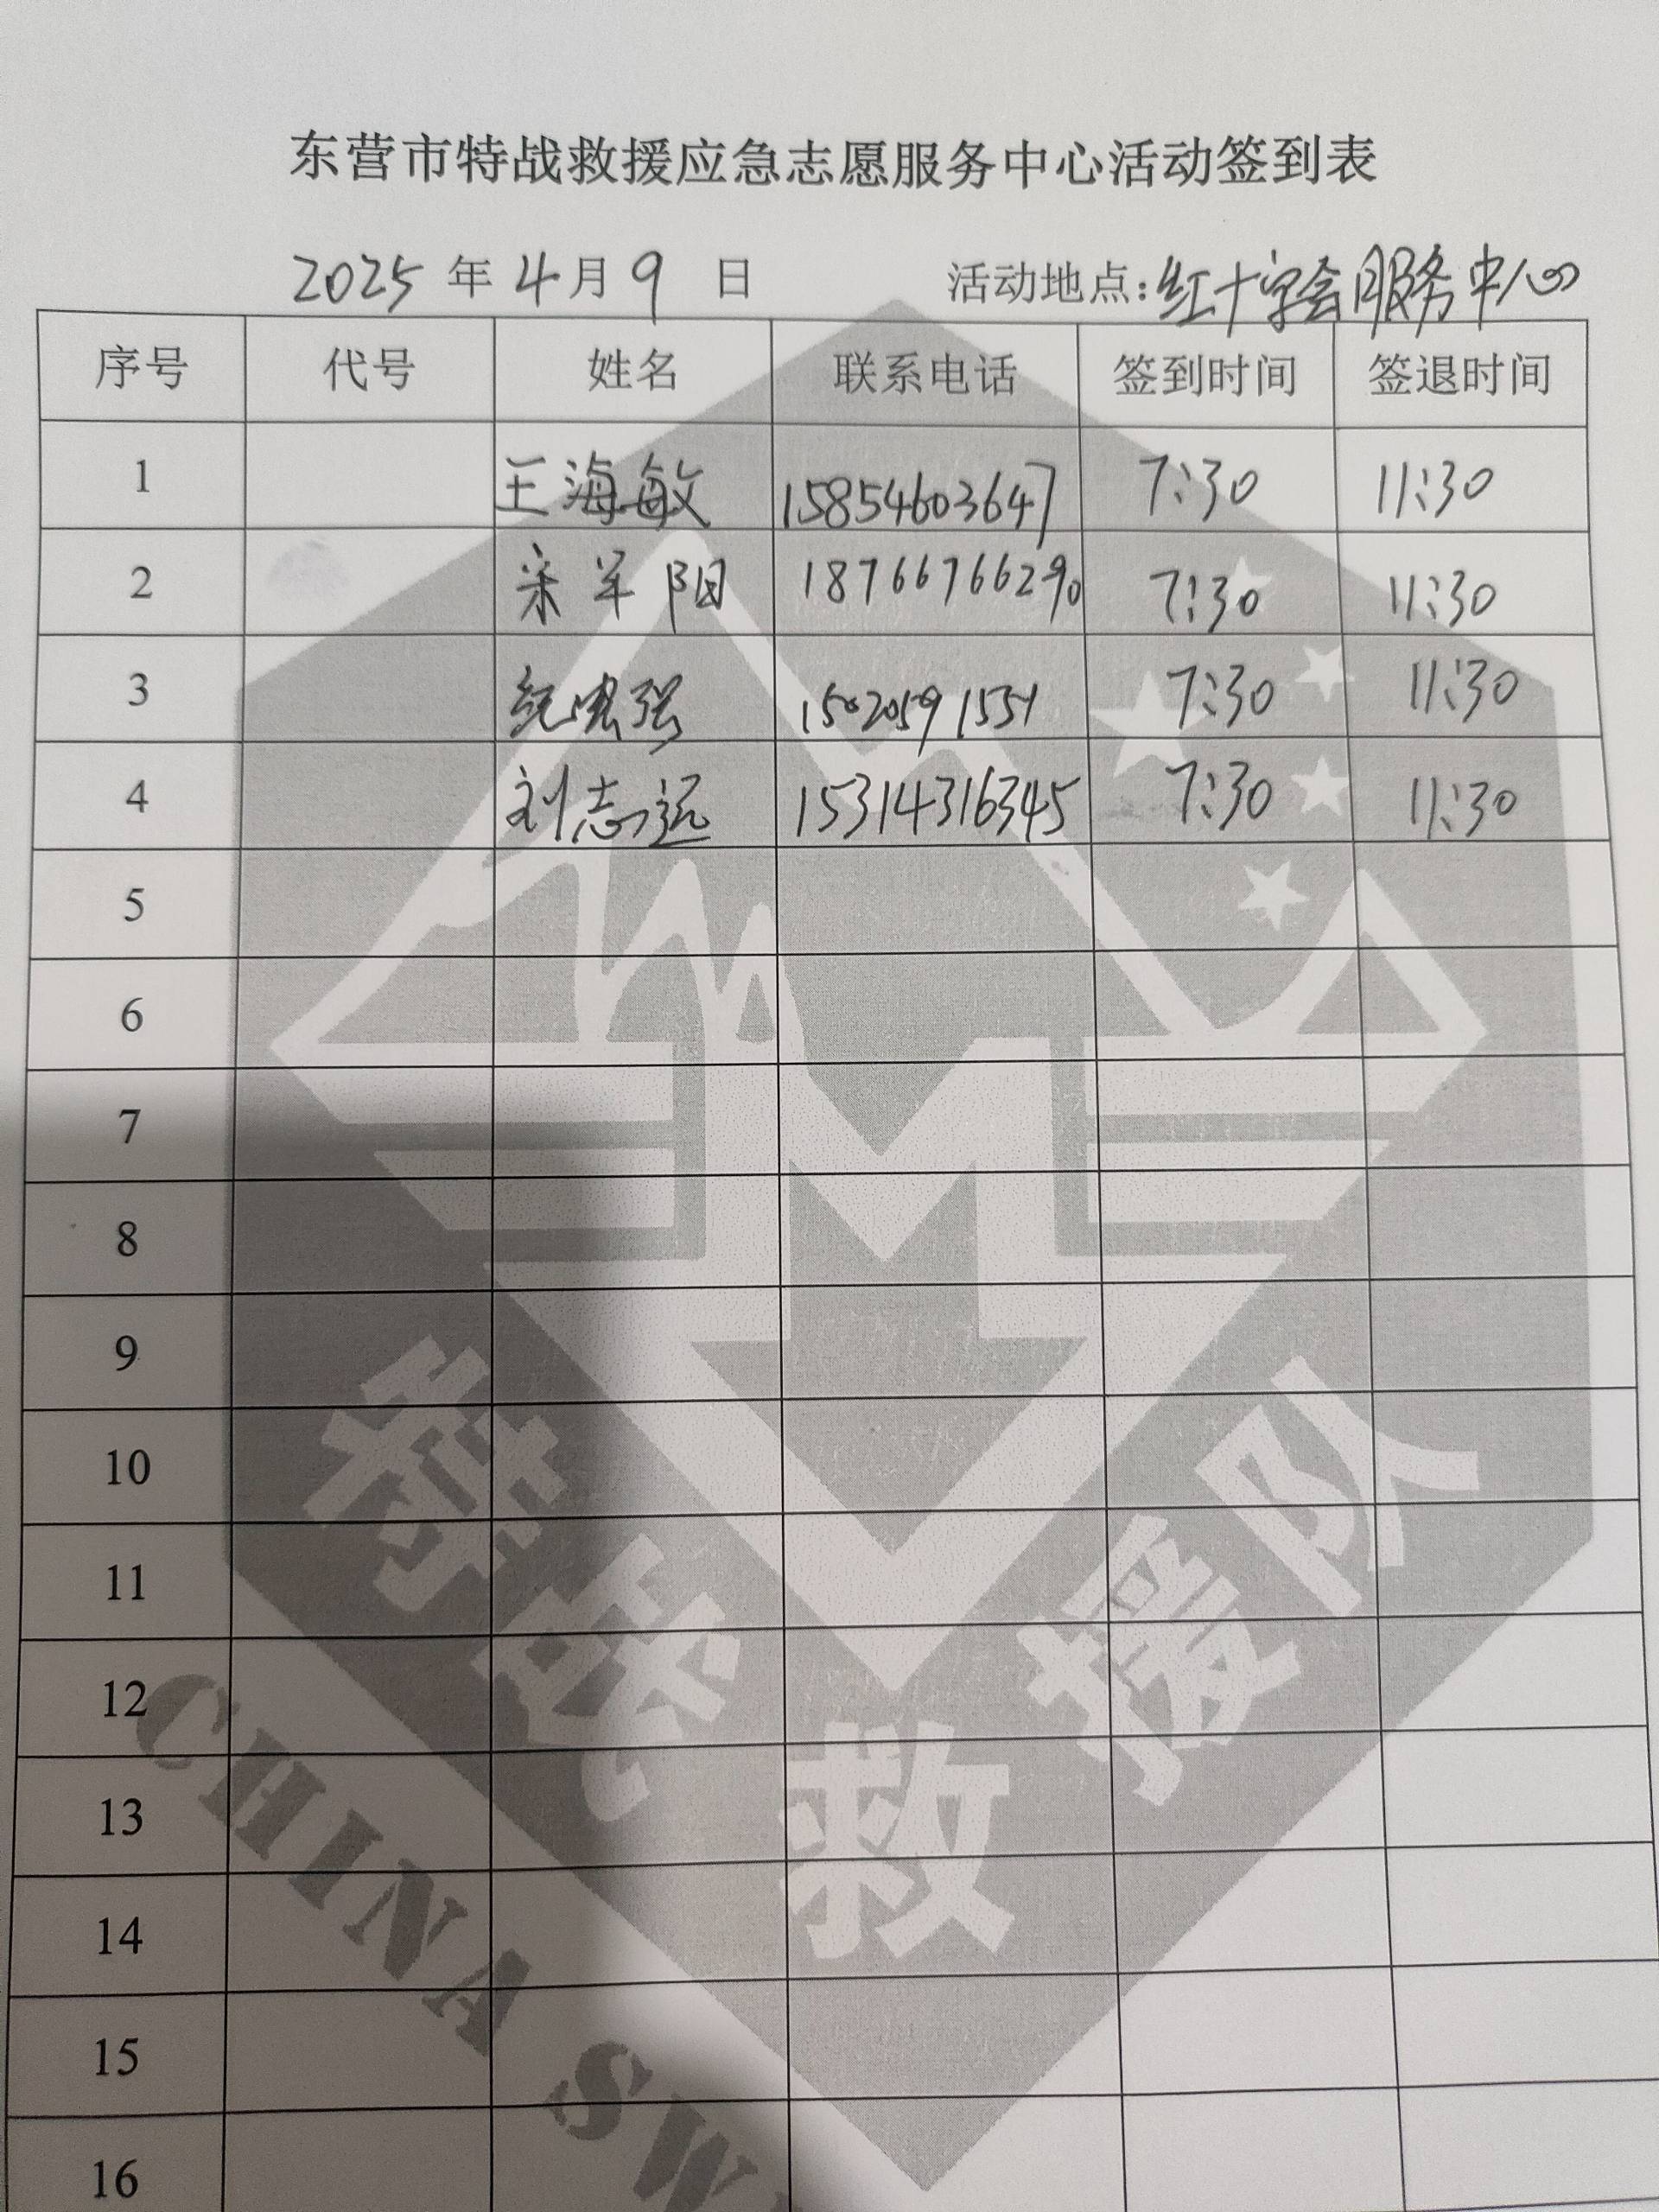 东营市特战救援应急志愿服务中心活动签到表
2025 年 4 月 9 日 活动地点:红十字会服务中心
序号 代号 姓名 联系电话 签到时间 签退时间
1 王海敏 15854603647 7:30 11:30
2 阳 18766766290 7:30 11:30
3 强 7:30 11:30
4 刘志远 15314316345 7:30 11:30
5
6
7
8
9
10
11
12
13
14
15
16
特战救援队
CHINA SW